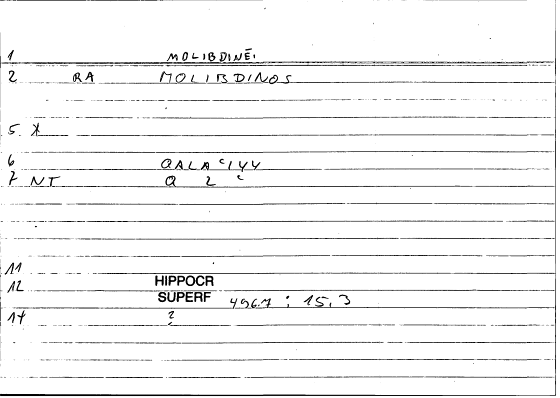 1 MOLIBDINĒ.
2 RA MOLIBDINOS
5. X
6 QALA
7 NT Q 2 c
11
12 HIPPOCR
SUPERF 496.7 : 15, 3
14 2